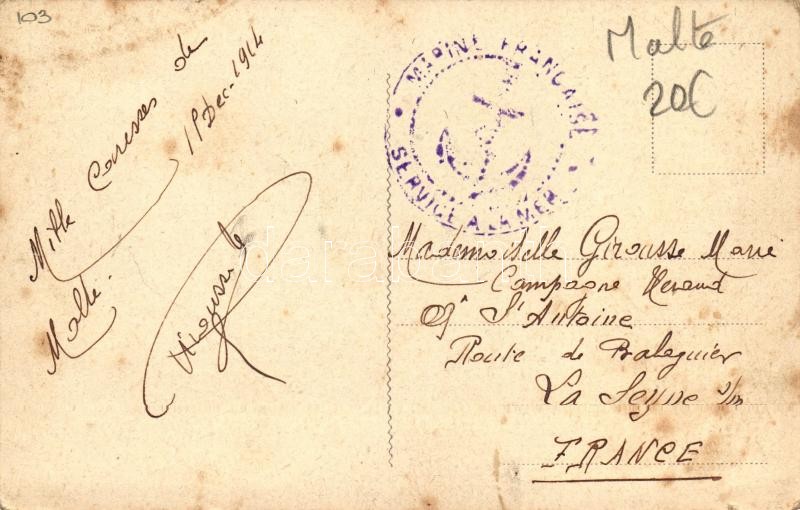 103
Mille Caresses de
Malte. 1r Dec. 1914
Malte
20€
MARINE FRANCAISE
SERVICE A LA MER
Mademoiselle Girousse Marie
Campagne
St Antoine
Route de Balaguier
La Seyne s/m
FRANCE